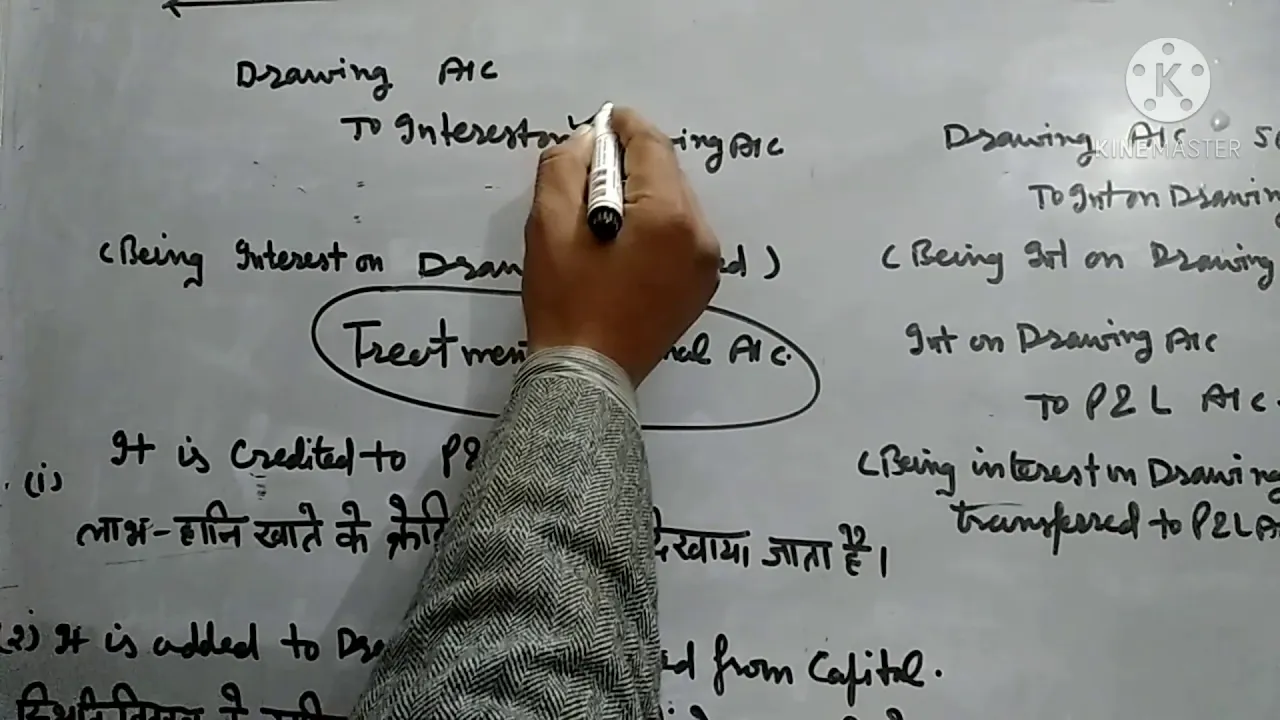 Drawing A/C
To Interest on ing A/C
(Being Interest on Draw ed)
Treatmen nal A/C.
(i) It is Credited to P&
लाभ-हानि खाते के क्रेडि दिखाया जाता है।
(2) It is added to Dra ed from Capital.
Drawing A/C 50
To Int on Drawin
(Being Int on Drawing
Int on Drawing A/C
To P&L A/C.
(Being interest on Drawing
transfered to P&L A/
K
KINEMASTER